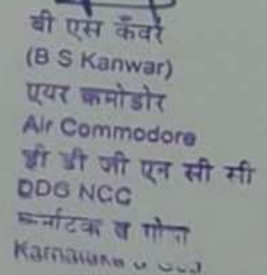 बी एस कँवर
(B S Kanwar)
एयर कमोडोर
Air Commodore
डी डी जी एन सी सी
DDG NCC
कर्नाटक व गोवा
Karnataka